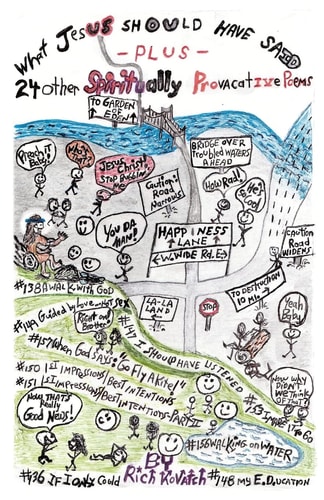 What JesUS SHOULD HAVE SAID
- PLUS -
24 other Spiritually ProvacatIVe Poems
TO GARDEN
OF
EDEN
BRIDGE OVER
Troubled WATERS
AHEAD
Preach IT
Jesus Christ!
STOP BUGGING
ME
Caution!
Road
Narrows
How Rad!
He's
Cool
YOU DA
MAN!
HAPPINESS
LANE
WIDE Rd. Ex
CAUTION
ROAD
WIDENS
TO DESTRUCTION
10 MI.
#138 A WALK with GOD
LA-LA
LAND
STOP
Yeah
Baby
#149 Guided by Love-not sex
Right on!
Brother!
#147 I SHOULD HAVE LISTENED
#157 When God Says "Go Fly A Kite!"
#150 1st Impressions/Best Intentions
#151 1st Impressions/Best Intentions-Part II
Now WHY
DIDN'T
WE THINK
OF THAT?
NOW THAT'S
Really
Good News!
#156 WALKING on WATER
BY
Rich Kovatch
#136 IF I only Could
#148 MY E.Ducation